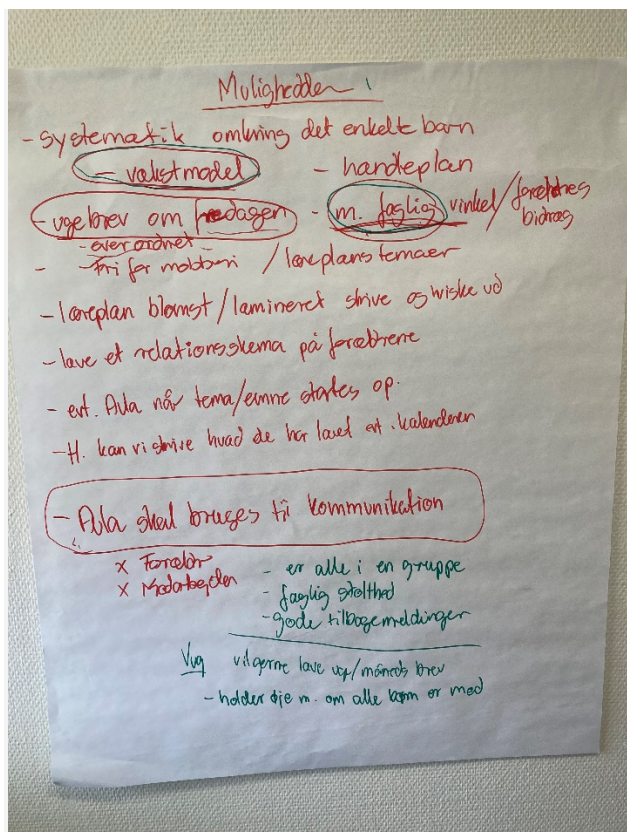 Muligheder
- systematik omkring det enkelte barn
- vækstmodel - handleplan
- ugebrev om fredagen - m. faglig vinkel / forældres bidrag
- overordnet -
- Fri for mobberi / læreplans temaer
- læreplan blomst / lamineret skrive og wiske ud
- lave et relationsskema på forældrene
- evt. Aula når tema/emne startes op.
- H. kan vi skrive hvad de har lavet evt. kalenderen
- Aula skal bruges til kommunikation
x Forældre - er alle i en gruppe
x Medarbejder - faglig stolthed
- gode tilbagemeldinger
Vug vil gerne lave uge/måneds brev
- holder øje m. om alle børn er med